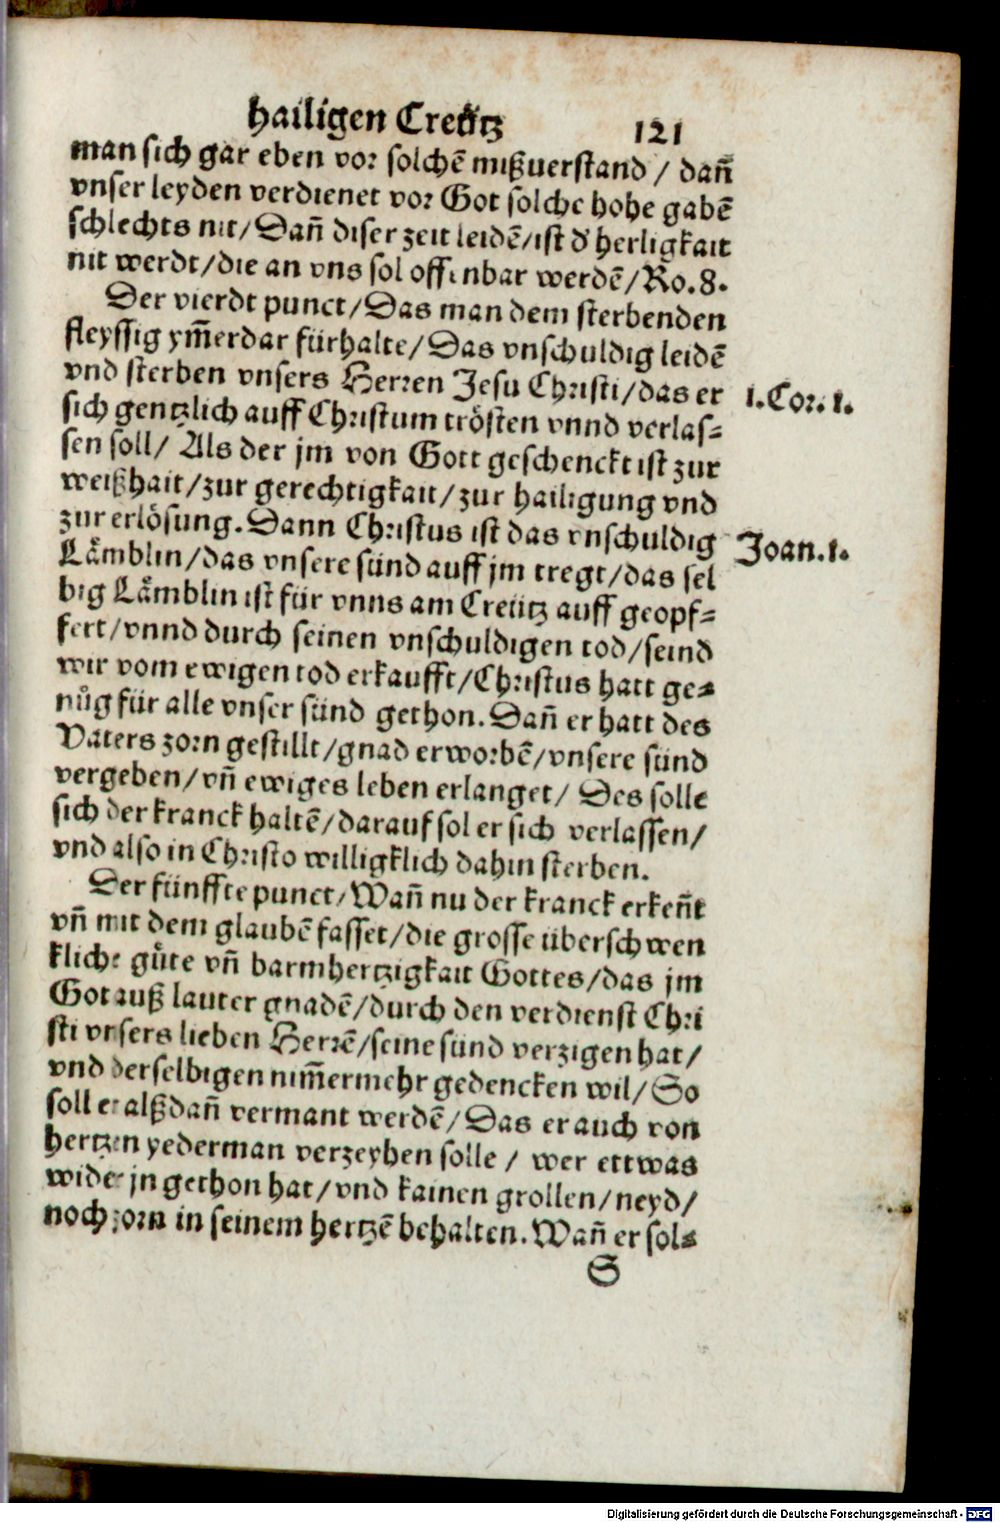 hailigen Creütz 121
man sich gar eben vor solchē mißuerstand / dañ
vnser leyden verdienet vor Got solche hohe gabē
schlechts nit/Dañ diser zeit leidē/ist d' herligkait
nit werdt/die an vns sol offinbar werdē/Ro.8.
Der vierdt punct/Das man dem sterbenden
fleyssig ym̄erdar fürhalte/Das vnschuldig leidē
vnd sterben vnsers Herren Jesu Christi/das er
1.Cor.1.
sich gentzlich auff Christum trösten vnnd verlas=
sen soll/ Als der jm von Gott geschenckt ist zur
weißhait/zur gerechtigkait/zur hailigung vnd
zur erlösung.Dann Christus ist das vnschuldig
Joan.1.
Lämblin/das vnsere sünd auff jm tregt/das sel
big Lämblin ist für vnns am Creütz auff geopf=
fert/vnnd durch seinen vnschuldigen tod/seind
wir vom ewigen tod erkaufft/Christus hatt ge=
nůg für alle vnser sünd gethon.Dañ er hatt des
Vaters zorn gestillt/gnad erworbē/vnsere sünd
vergeben/vñ ewiges leben erlanget/ Des solle
sich der kranck haltē/darauf sol er sich verlassen/
vnd also in Christo willigklich dahin sterben.
Der fünffte punct/Wañ nu der kranck erkeñt
vñ mit dem glaubē fasset/die grosse überschwen
kliche gůte vñ barmhertzigkait Gottes/das jm
Got auß lauter gnadē/durch den verdienst Chri
sti vnsers lieben Herrē/seine sünd verzigen hat/
vnd derselbigen nim̄ermehr gedencken wil/So
soll er alßdañ vermant werdē/Das er auch von
hertzen yederman verzeyhen solle / wer ettwas
wider jn gethon hat/vnd kainen grollen/neyd/
noch zorn in seinem hertzē behalten.Wañ er sol=
S
Digitalisierung gefördert durch die Deutsche Forschungsgemeinschaft - DFG